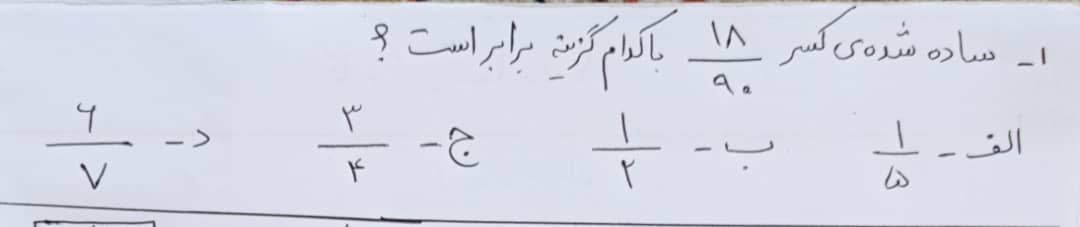 ۱- ساده شده‌ی کسر ۱۸/۹۰ با کدام گزینه برابر است ؟
الف - ۱/۵ ب - ۱/۲ ج - ۳/۴ د - ۶/۷